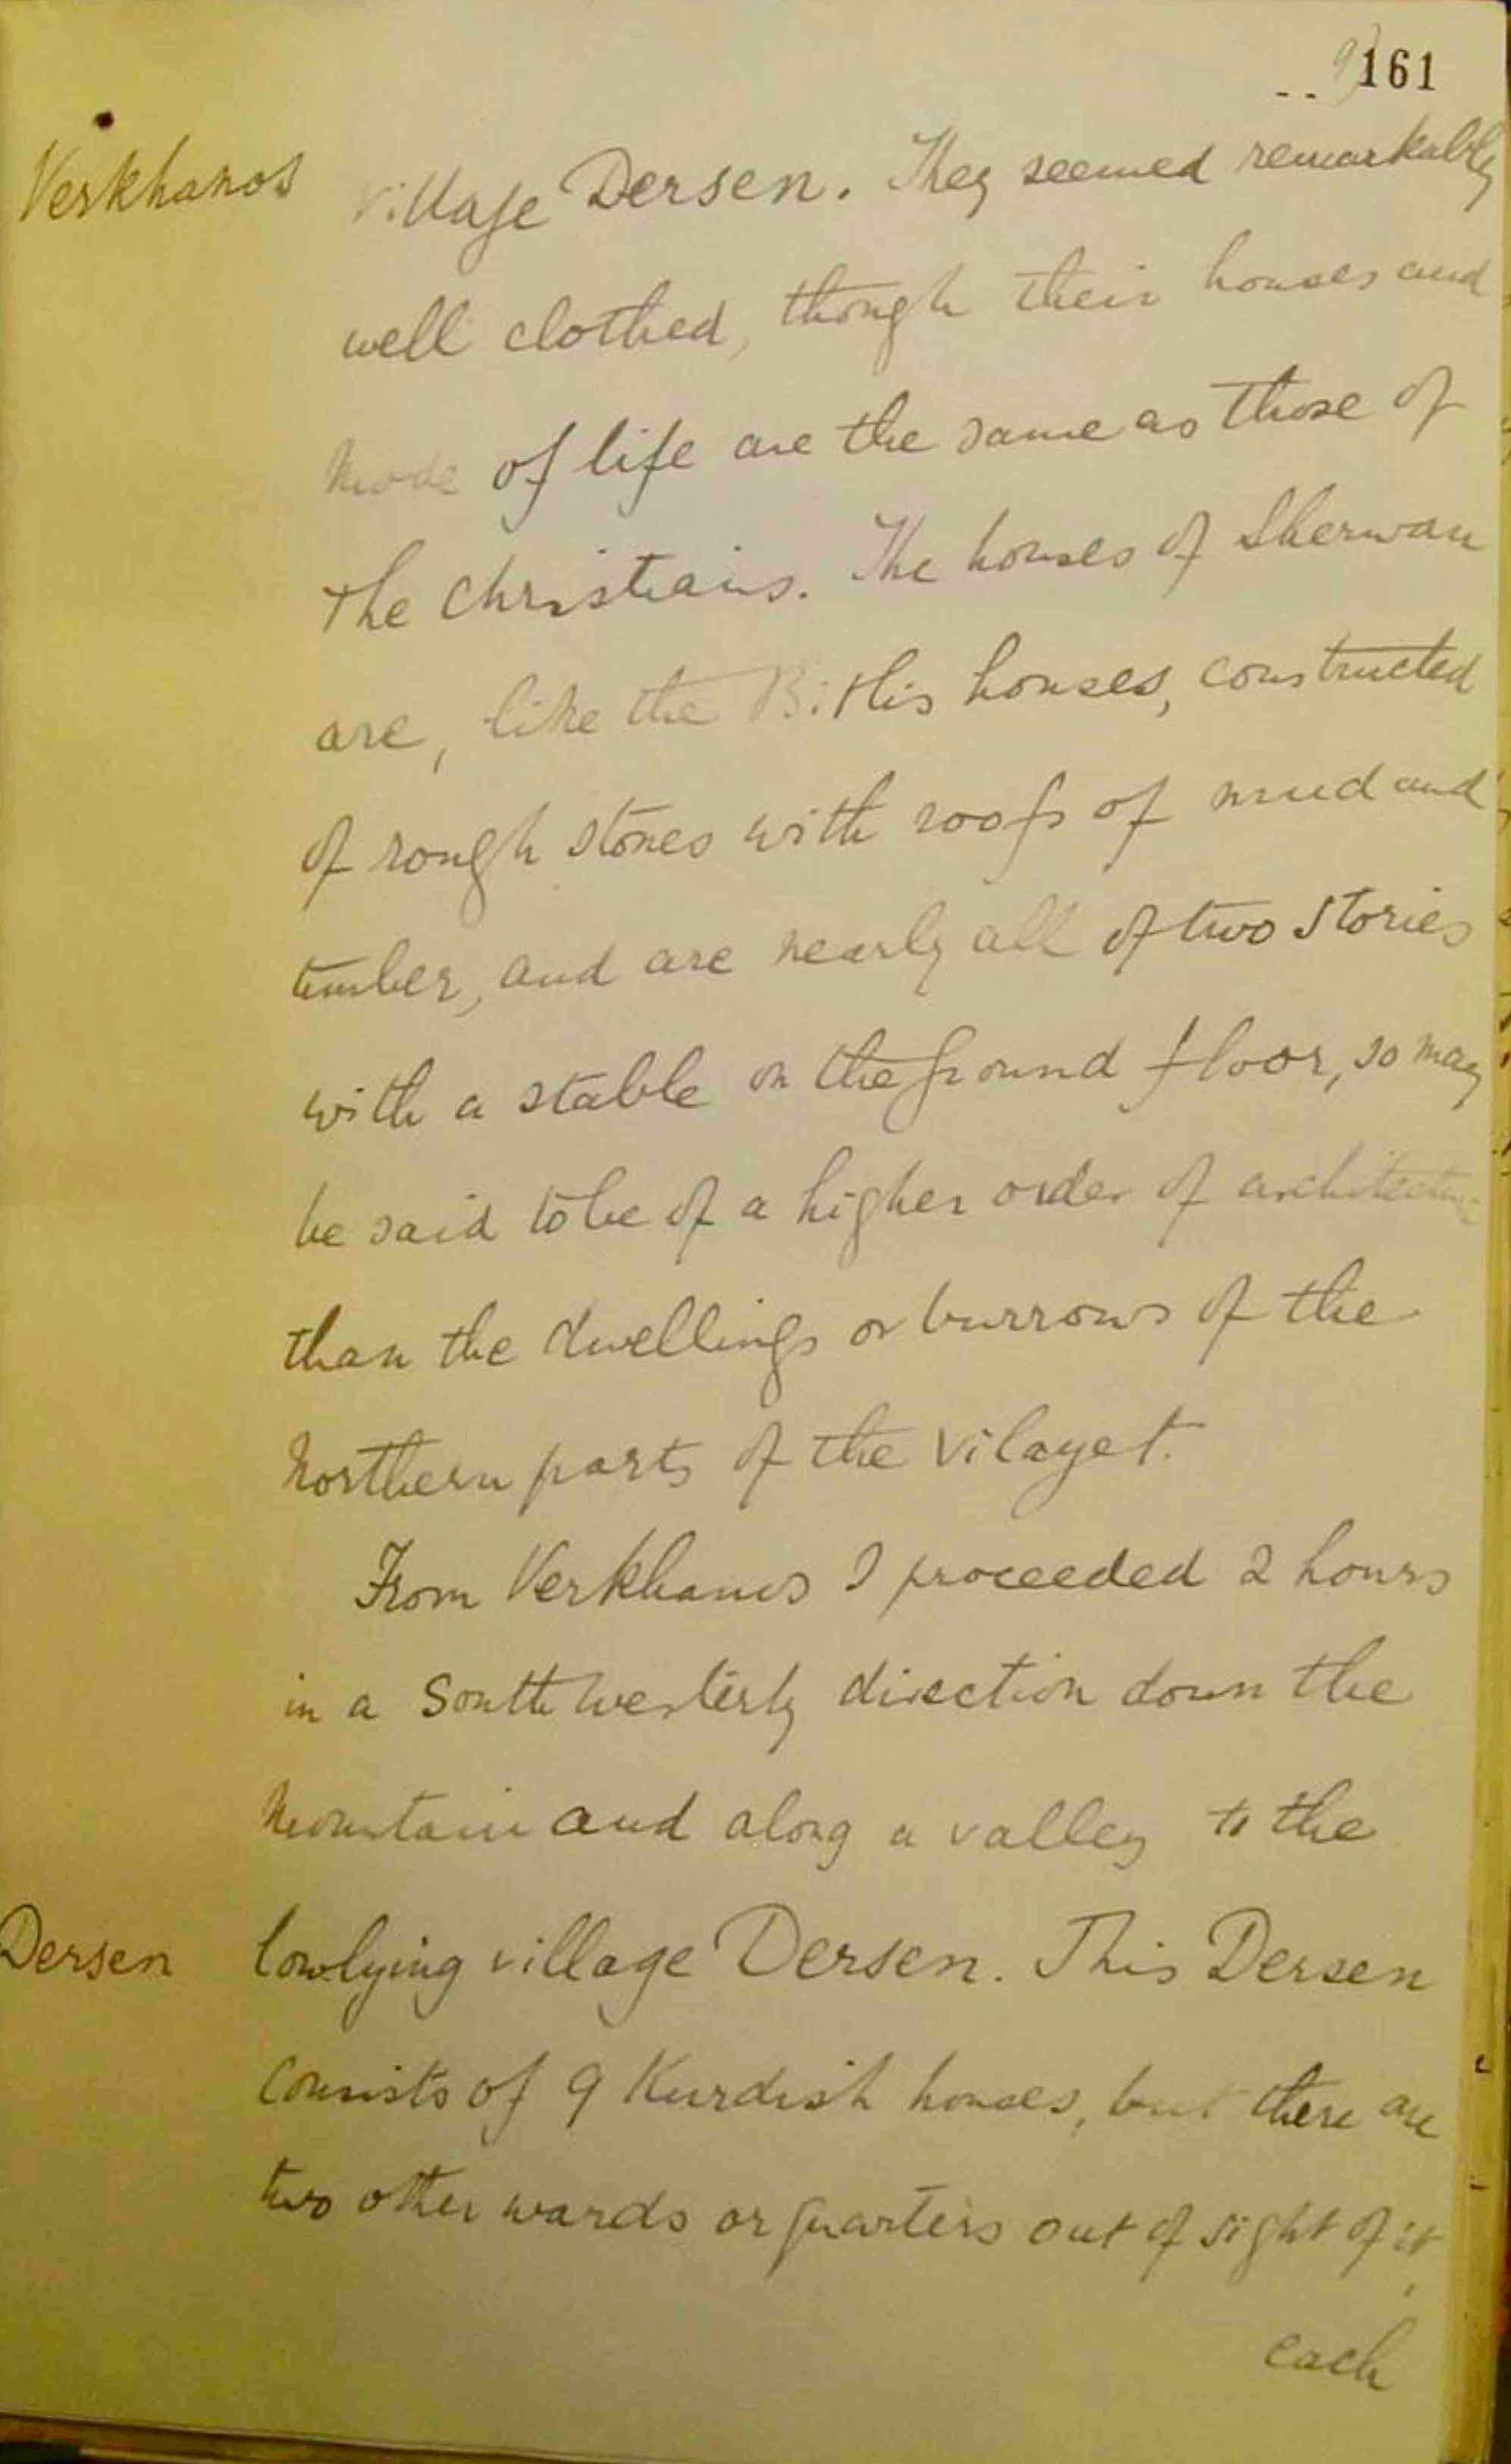 161
Verkhanos
village Dersen. They seemed remarkably
well clothed, though their houses and
mode of life are the same as those of
the Christians. The houses of Sherwan
are, like the Bitlis houses, constructed
of rough stones with roofs of mud and
timber, and are nearly all of two stories
with a stable on the ground floor, so may
be said to be of a higher order of architecture
than the dwellings or burrows of the
Northern parts of the Vilayet.
From Verkhanos I proceeded 2 hours
in a South Westerly direction down the
Mountain and along a valley to the
Dersen
lowlying village Dersen. This Dersen
Consists of 9 Kurdish houses, but there are
two other wards or quarters out of sight of it,
each